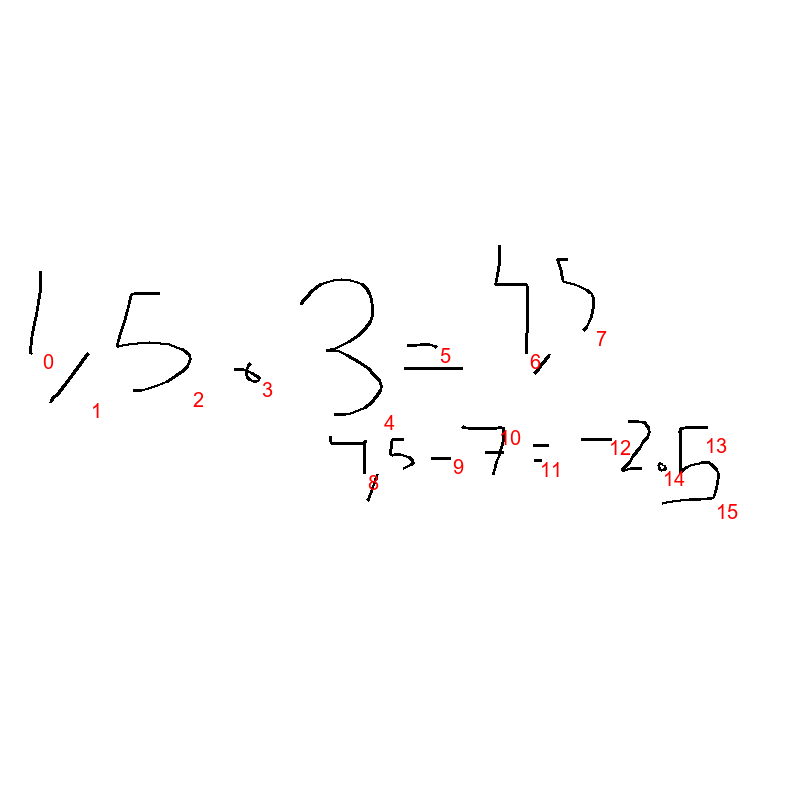 1,5 · 3 = 4,5
4,5 - 7 = -2.5
0 1 2 3 4 5 6 7
8 9 10 11 12 13 14 15